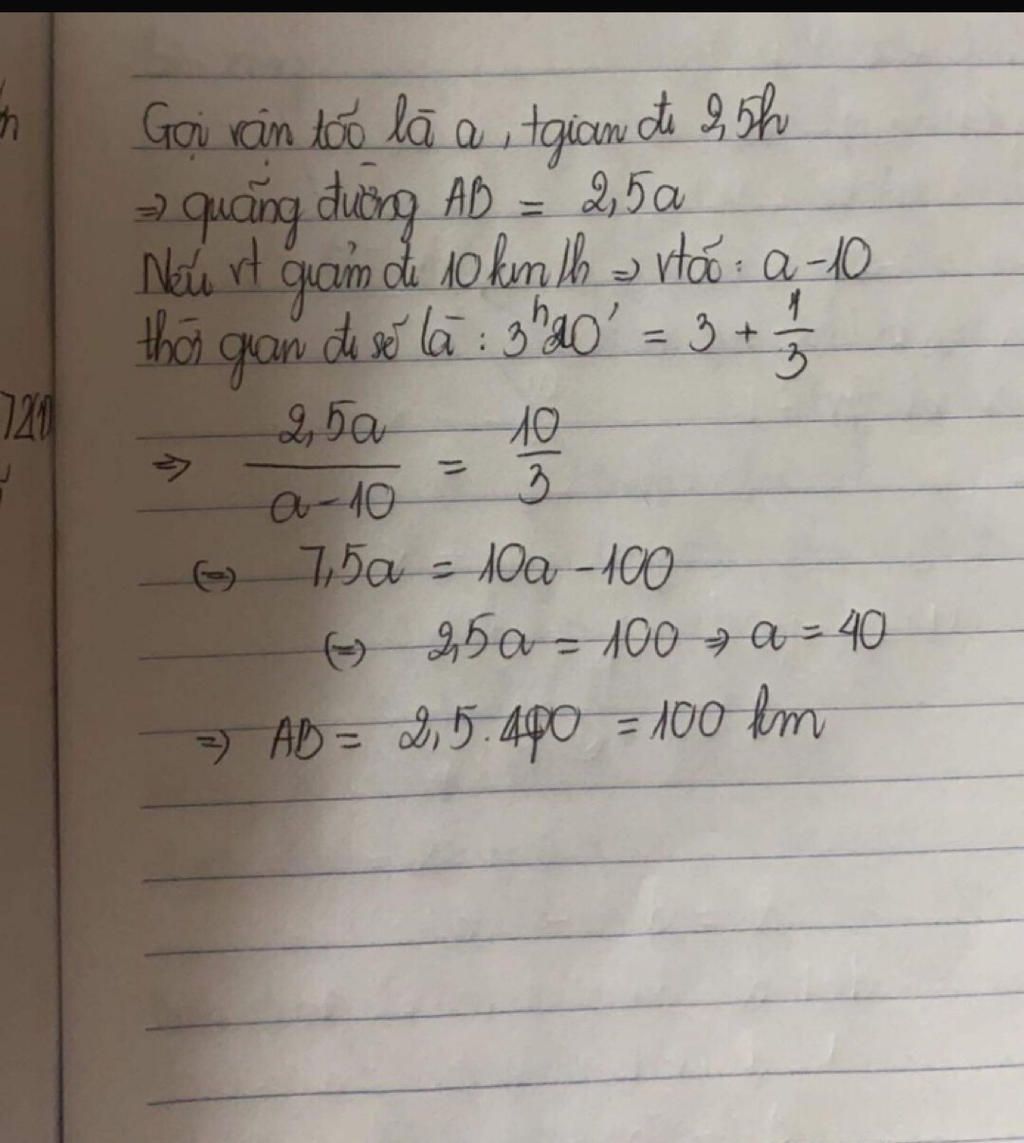 Gọi vận tốc là a, tgian đi 2,5h
=> quãng đường AB = 2,5a
Nếu vt giảm đi 10km/h => vtốc: a-10
thời gian đi sẽ là: 3h20' = 3 + 1/3
=> 2,5a / a-10 = 10/3
(=) 7,5a = 10a - 100
(=) 2,5a = 100 => a = 40
=> AB = 2,5.40 = 100 km